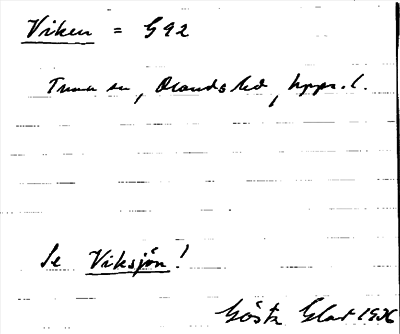 Viken = G92
Tuna sn, Olands hd, Upps. l.
Se Viksjön!
Gösta Glat 1936